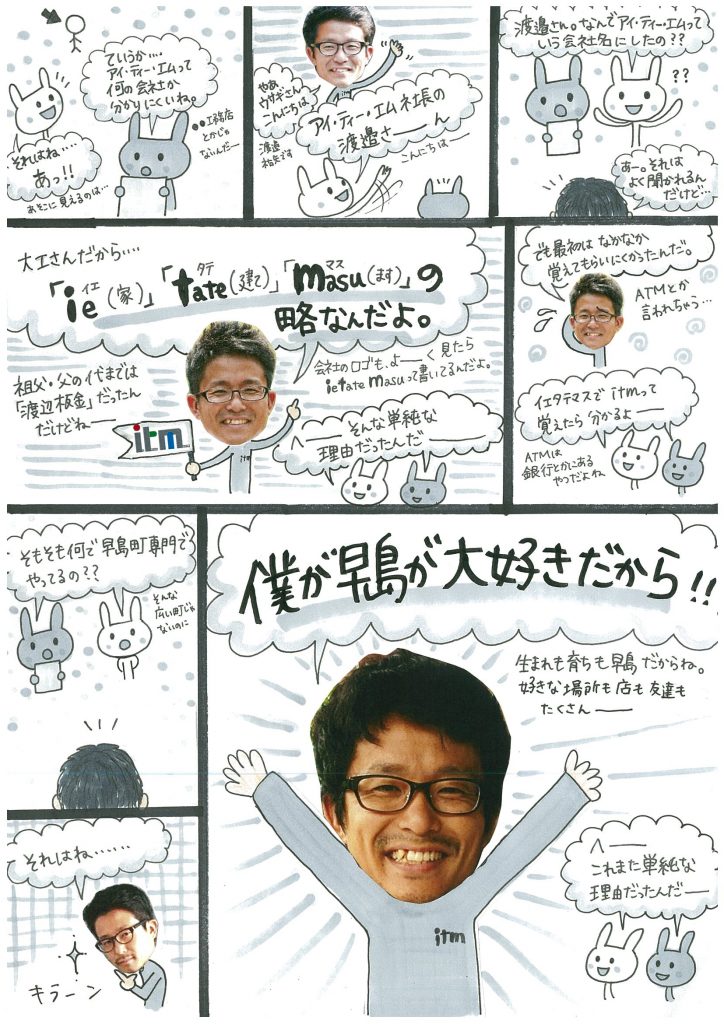 ていうか…
アイ・ティー・エムって
何の会社か
分かりにくいね。
●●工務店
とかじゃ
ないんだー
それはね…
あっ!!
あそこに見えるのは…
やぁ
ウサギさん
こんにちは
渡邉
アイ・ティー・エム社長の
渡邉さーーん
こんにちはー
渡邉さん。なんでアイ・ティー・エムって
いう会社名にしたの??
??
あー。それは
よく聞かれるん
だけど…
大工さんだから….
イエ タテ マス
「ie(家)」「tate(建て)」「masu(ます)」の
略なんだよ。
会社のロゴも、よーーく見たら
ie tate masuって書いてるんだよ。
祖父・父の代までは
「渡辺板金」だったん
だけどねー
itm
itm
へーそんな単純な
理由だったんだー
でも最初はなかなか
覚えてもらいにくかったんだ。
ATMとか
言われちゃう…
イエタテマスでitmって
覚えたら分かるよー
ATMは
銀行とかにある
やつだよね
そもそも何で早島町専門で
やってるの??
そんな
広い町じゃ
ないのに
それはね……
キラーン
僕が早島が大好きだから!!
生まれも育ちも早島だからね。
好きな場所も店も友達も
たくさんー
itm
へー
これまた単純な
理由だったんだー